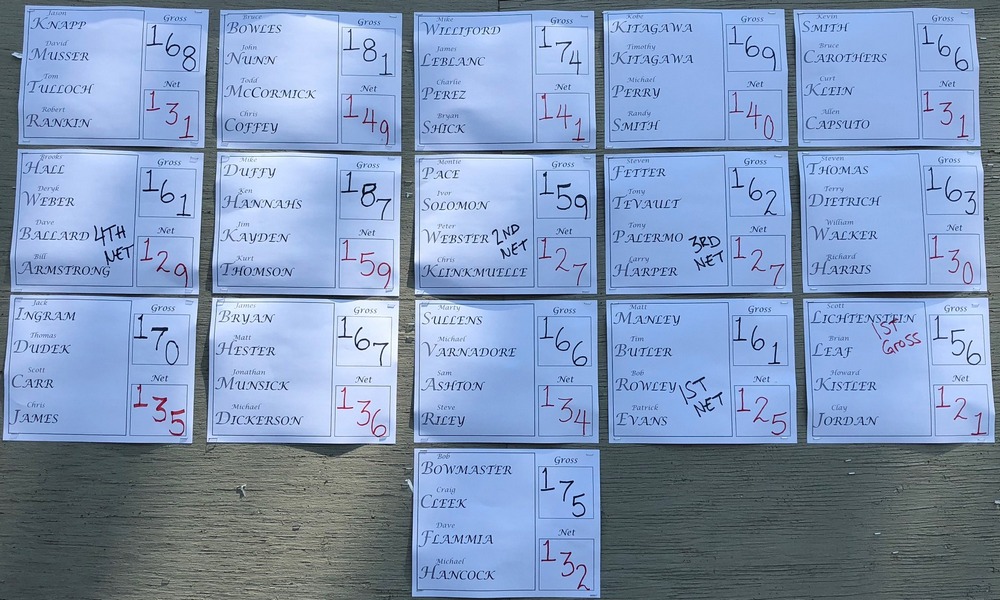 Jason
KNAPP
David
MUSSER
Tom
TULLOCH
Robert
RANKIN
Gross
168
Net
131
Bruce
BOWLES
John
NUNN
Todd
MCCORMICK
Chris
COFFEY
Gross
181
Net
149
Mike
WILLIFORD
James
LEBLANC
Charlie
PEREZ
Bryan
SHICK
Gross
174
Net
141
Kobe
KITAGAWA
Timothy
KITAGAWA
Michael
PERRY
Randy
SMITH
Gross
169
Net
140
Kevin
SMITH
Bruce
CAROTHERS
Curt
KLEIN
Allen
CAPSUTO
Gross
166
Net
131
Brooks
HALL
Deryk
WEBER
Dave
BALLARD
Bill
ARMSTRONG
4TH
NET
Gross
161
Net
129
Mike
DUFFY
Ken
HANNAHS
Jim
KAYDEN
Kurt
THOMSON
Gross
187
Net
159
Montie
PACE
Ivor
SOLOMON
Peter
WEBSTER
Chris
KLINKMUELLE
2ND
NET
Gross
159
Net
127
Steven
FETTER
Tony
TEVAULT
Tony
PALERMO
Larry
HARPER
3RD
NET
Gross
162
Net
127
Steven
THOMAS
Terry
DIETRICH
William
WALKER
Richard
HARRIS
Gross
163
Net
130
Jack
INGRAM
Thomas
DUDEK
Scott
CARR
Chris
JAMES
Gross
170
Net
135
James
BRYAN
Matt
HESTER
Jonathan
MUNSICK
Michael
DICKERSON
Gross
167
Net
136
Marty
SULLENS
Michael
VARNADORE
Sam
ASHTON
Steve
RILEY
Gross
166
Net
134
Matt
MANLEY
Tim
BUTLER
Bob
ROWLEY
Patrick
EVANS
1ST
NET
Gross
161
Net
125
Scott
LICHTENSTEIN
Brian
LEAF
Howard
KISTLER
Clay
JORDAN
1ST
GROSS
Gross
156
Net
121
Bob
BOWMASTER
Craig
CLEEK
Dave
FLAMMIA
Michael
HANCOCK
Gross
175
Net
132